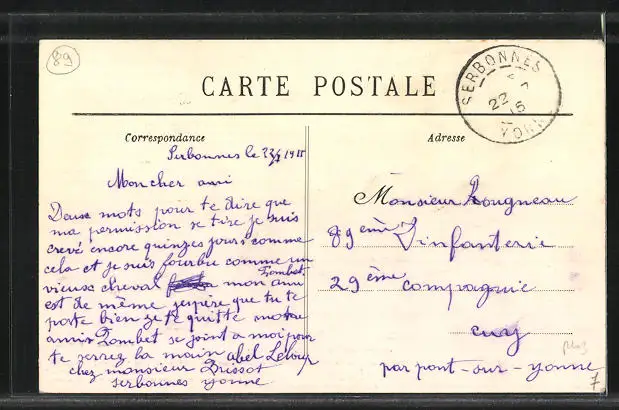 89
CARTE POSTALE
SERBONNES
22 7
15
YONNE
Correspondance
Adresse
Serbonnes le 22/7 1915
Mon cher ami
Deux mots pour te dire que
ma permission se tire je suis
crevé encore quinzes jours comme
cela et je suis fourbu comme un
vieux cheval mon ami Zombet
est de même j'espère que tu te
porte bien je te quitte notre
amis Zombet se joint a moi pour
te serrez la main abel Leloup
chez monsieur Brissot
serbonnes yonne
Monsieur Rougneau
89ème D'infanterie
29ème compagnie
cuy
par pont-sur-yonne
7